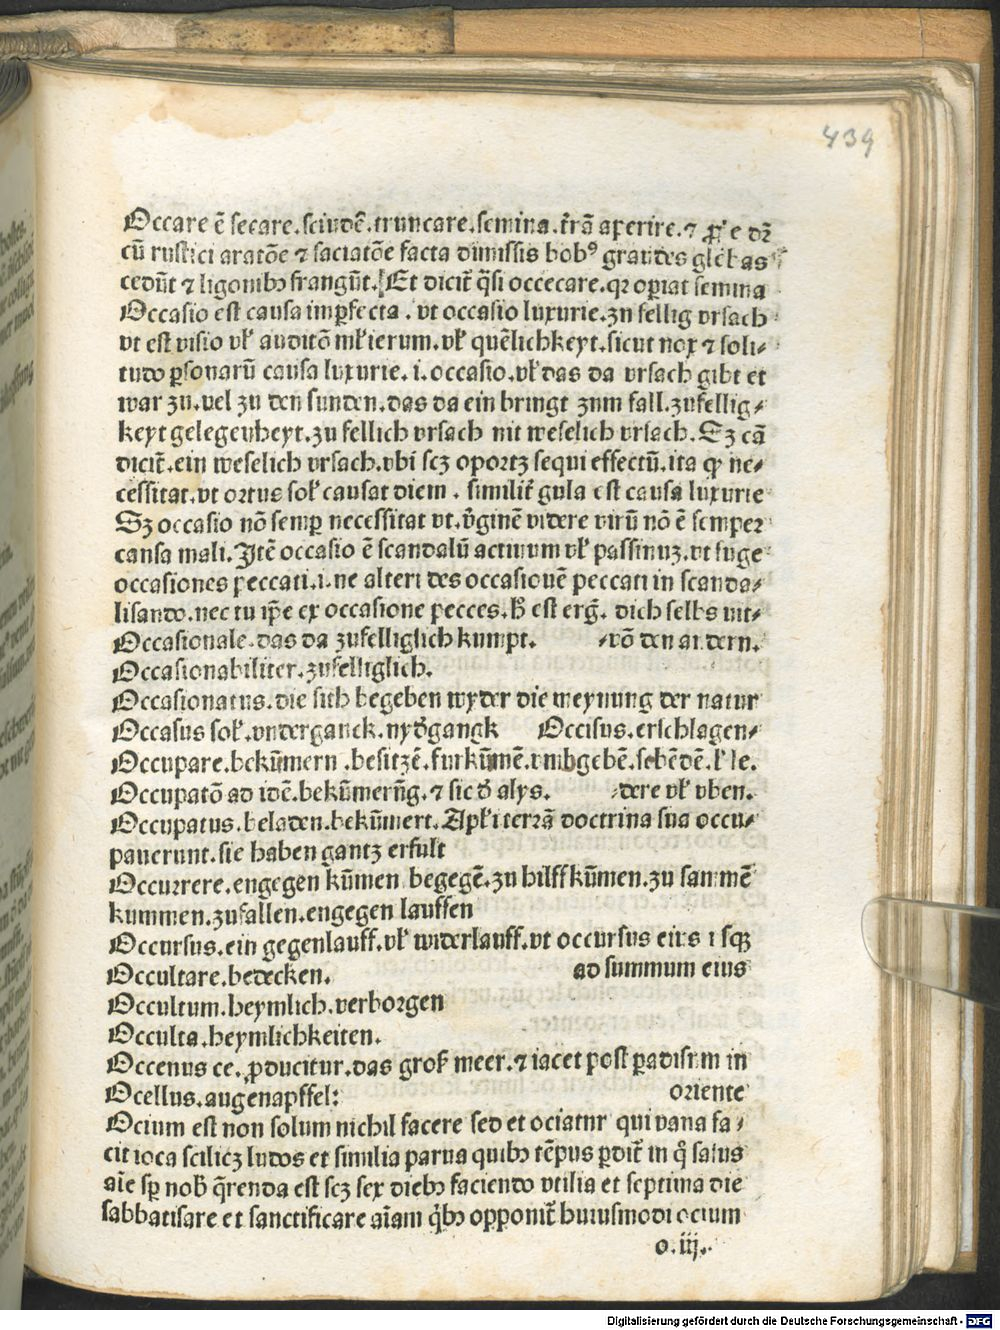 439
Occare ē secare.scindē.truncare.semina.t̄rā aperire.⁊ ꝓp'e dꝛ̄
cū rustici aratōe ⁊ saciatōe facta dimissis bobꝰ grandes glebas
cedūt ⁊ ligonibꝫ frangūt. Et dicit̄ q̄si occecare.qꝛ oꝑiat semina
Occasio est causa imꝑfecta . vt occasio luxurie.zu fellig vrsach
vt est visio vl̓ auditō ml̓ierum.vl̓ quēlichkeyt.sicut nox ⁊ soli⸗
tudo ꝑsonarū causa luxurie. i.occasio.vl̓ das da vrsach gibt et
war zu.vel zu den sunden.das da ein bringt zum fall.zufellig⸗
keyt gelegenheyt.zu fellich vrsach nit weselich vrsach. Sꝫ cā
dicit̄.ein weselich vrsach.vbi scꝫ oportꝫ sequi effectū.ita ꝙ ne⸗
cessitat.vt ortus sol̓ causat diem . similit̄ gula est causa luxurie
Sꝫ occasio nō semꝑ necessitat vt.v̄ginē videre virū nō ē semper
causa mali. Itē occasio ē scandalū actiuum vl̓ passiuuꝫ.vt fuge
occasiones peccati.i.ne alteri des occasionē peccati in scanda⸗
lisando.nec tu ip̄e ex occasione pecces.h̄ est erḡ. dich selbs vnt⸗
Occasionale.das da zufelliglich kumpt. ⸗vō den andern.
Occasionabiliter.zufelliglich.
Occasionatus.die sich begeben wyder die meynung der natur
Occasus sol̓.vnderganck.nyd̓gangk Occisus.erschlagen⸗
Occupare.bekūmern .besitzē.furkūmē.vmbgebē. l̓ le.
Occupatō ad idē.bekūmerūg.⁊ sic d̓ alys. ⸗dere vl̓ vben.
Occupatus.beladen.bekūmert. Apl̓i terrā doctrina sua occu⸗
pauerunt.sie haben gantz erfult
Occurrere.engegen kūmen begegē.zu hilff kūmen.zu sammē
kummen.zufallen.engegen lauffen
Occursus.ein gegenlauff.vl̓ widerlauff.vt occursus eius vsqꝫ
Occultare.bedecken. ad summum eius
Occultum.heymlich.verborgen
Occulta.heymlichkeiten.
Occenus ce.ꝓducitur.das groſ̓ meer.⁊ iacet post ꝑadisum in
Ocellus.augenapffel: oriente
Ocium est non solum nichil facere sed et ociatur qui vana fa⸗
cit ioca scilicꝫ ludos et similia parua quibꝫ tēpus ꝑdit̄ in q̊ salus
aīe sꝑ nob̄ q̄renda est scꝫ sex diebꝫ faciendo vtilia et septima die
sabbatisare et sanctificare aīam q̄bꝫ opponit̄ huiusmodi ocium
o.iij.
Digitalisierung gefördert durch die Deutsche Forschungsgemeinschaft - DFG